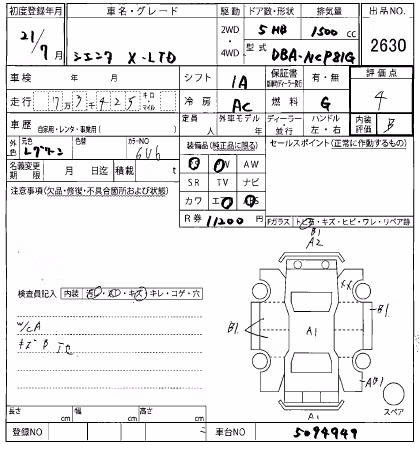 初度登録年月 車名・グレード 駆動 ドア数・形状 排気量 出品NO.
21/7月 シエンタ X-LTD 2WD・4WD 5 HB 1500 cc 2630
型式 DBA-NCP81G
車検 年 月 シフト IA 保証書 有・無 評価点
走行 7万3千425 キロ・マイル 冷房 AC 燃料 G 4
車歴 自家用・レンタ・事業用( ) 定員 人 外車モデル 年 ディーラー・並行 ハンドル 左・右 内装評価 B
外色 元色 カラーNO 6V6 装備品(純正品に限る) セールスポイント(正常に作動するもの)
名義変更期限 月 日迄 積載 t
SR TV ナビ
AW
注意事項(欠品・修復・不具合箇所および状態)
カワ エアB ABS
R券 11200 円
Fガラス トビ石・キズ・ヒビ・ワレ・リペア跡
B1
A2
検査員記入 内装 汚レ・凹・キズ・キレ・コゲ・穴
B1 A1 B1
W/CA
キズ B
AB1
スペア
A1
長さ cm 幅 cm 高さ cm
登録NO 車台NO 5094949